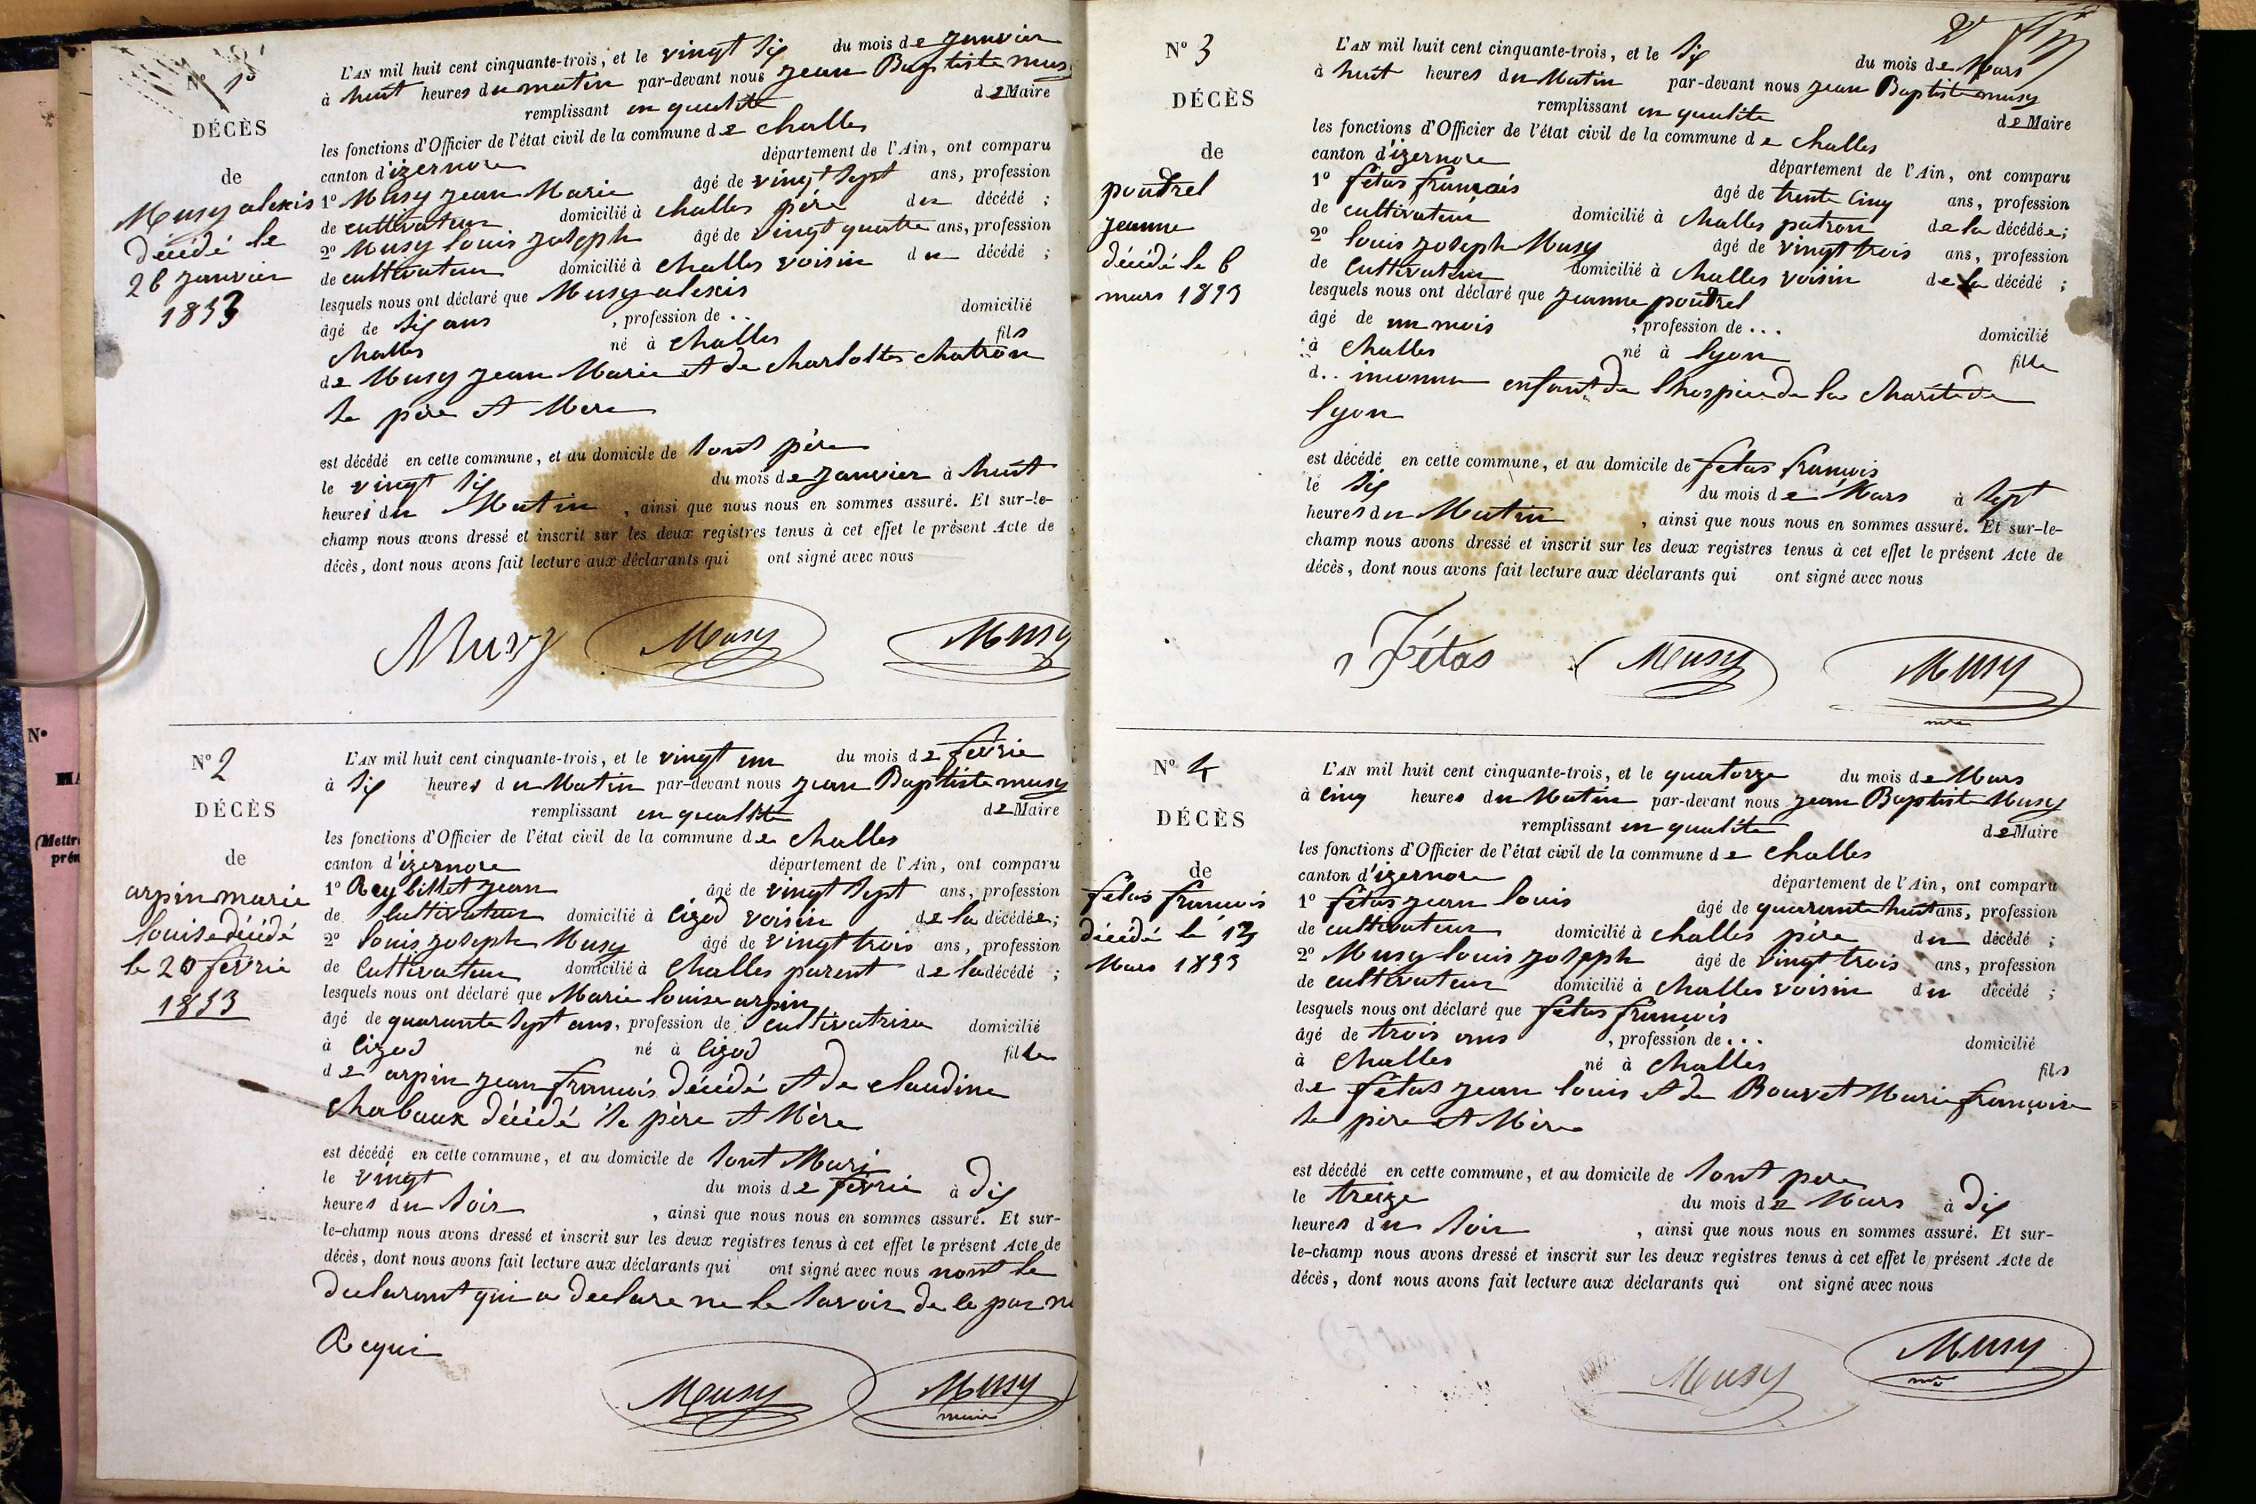 N° 1
DÉCÈS
de
Musy alexis
décédé le
26 janvier
1853
L'AN mil huit cent cinquante-trois, et le vingt six du mois de janvier
à huit heures du matin par-devant nous jean Baptiste musy
remplissant en qualité de Maire
les fonctions d'Officier de l'état civil de la commune de challes
canton d'izernore département de l'Ain, ont comparu
1° Musy jean Marie âgé de vingt sept ans, profession
de cultivateur domicilié à challes père du décédé ;
2° Musy louis joseph âgé de vingt quatre ans, profession
de cultivateur domicilié à challes voisin du décédé ;
lesquels nous ont déclaré que Musy alexis
âgé de six ans , profession de .. domicilié
challes né à challes fils
de Musy jean Marie et de charlottes chatron
se père et Mere
est décédé en cette commune, et au domicile de sont père
le vingt six du mois de janvier à huit
heures du Matin , ainsi que nous nous en sommes assuré. Et sur-le-
champ nous avons dressé et inscrit sur les deux registres tenus à cet effet le présent Acte de
décès, dont nous avons fait lecture aux déclarants qui ont signé avec nous
Musy Musy Musy
N° 2
DÉCÈS
de
arpin marie
louise décédé
le 20 fevrie
1853
L'AN mil huit cent cinquante-trois, et le vingt un du mois de fevrie
à six heures du Matin par-devant nous jean Baptiste musy
remplissant en qualité de Maire
les fonctions d'Officier de l'état civil de la commune de challes
canton d'izernore département de l'Ain, ont comparu
1° Reybillet jean âgé de vingt sept ans, profession
de cultivateur domicilié à cizod voisin de la décédée ;
2° louis joseph Musy âgé de vingt trois ans, profession
de cultivateur domicilié à challes parent de la décédé ;
lesquels nous ont déclaré que Marie louise arpin
âgé de quarante sept ans, profession de cultivatrise domicilié
à cizod né à cizod fille
de arpin jean françois décédé et de claudine
chabaux décédé se père et Mère
est décédé en cette commune, et au domicile de sont Mari
le vingt du mois de fevrie à dix
heures du soir , ainsi que nous nous en sommes assuré. Et sur-
le-champ nous avons dressé et inscrit sur les deux registres tenus à cet effet le présent Acte de
décès, dont nous avons fait lecture aux déclarants qui ont signé avec nous nont le
declarant qui a declare ne le savoir de ce par
Requi
Musy Musy
maire
N° 3
DÉCÈS
de
poutrel
jeanne
décédé le 6
mars 1853
L'AN mil huit cent cinquante-trois, et le six du mois de Mars
à huit heures du Matin par-devant nous jean Baptiste musy
remplissant en qualite de Maire
les fonctions d'Officier de l'état civil de la commune de challes
canton d'izernore département de l'Ain, ont comparu
1° fétas français âgé de trente cinq ans, profession
de cultivateur domicilié à challes patron de la décédée ;
2° louis joseph Musy âgé de vingt trois ans, profession
de cultivateur domicilié à challes voisin de la décédé ;
lesquels nous ont déclaré que jeanne poutrel
âgé de un mois , profession de ... domicilié
à challes né à lyon fille
d.. inconnu enfant de lhospice de la charité de
lyon
est décédé en cette commune, et au domicile de fétas françois
le six du mois de Mars à sept
heures du Matin , ainsi que nous nous en sommes assuré. Et sur-le-
champ nous avons dressé et inscrit sur les deux registres tenus à cet effet le présent Acte de
décès, dont nous avons fait lecture aux déclarants qui ont signé avec nous
Fétas Musy Musy
N° 4
DÉCÈS
de
fétas françois
décédé le 13
Mars 1853
L'AN mil huit cent cinquante-trois, et le quatorze du mois de Mars
à cinq heures du Matin par-devant nous jean Baptiste Musy
remplissant en qualité de Maire
les fonctions d'Officier de l'état civil de la commune de challes
canton d'izernore département de l'Ain, ont comparu
1° fétas jean louis âgé de quarante huit ans, profession
de cultivateur domicilié à challes père du décédé ;
2° Musy louis joseph âgé de vingt trois ans, profession
de cultivateur domicilié à challes voisin du décédé ;
lesquels nous ont déclaré que fétas françois
âgé de trois ans , profession de ... domicilié
à challes né à challes fils
de fétas jean louis et de Bouvet Marie françoise
se père et Mère
est décédé en cette commune, et au domicile de sont pere
le treize du mois de Mars à dix
heures du soir , ainsi que nous nous en sommes assuré. Et sur-
le-champ nous avons dressé et inscrit sur les deux registres tenus à cet effet le présent Acte de
décès, dont nous avons fait lecture aux déclarants qui ont signé avec nous
Musy Musy